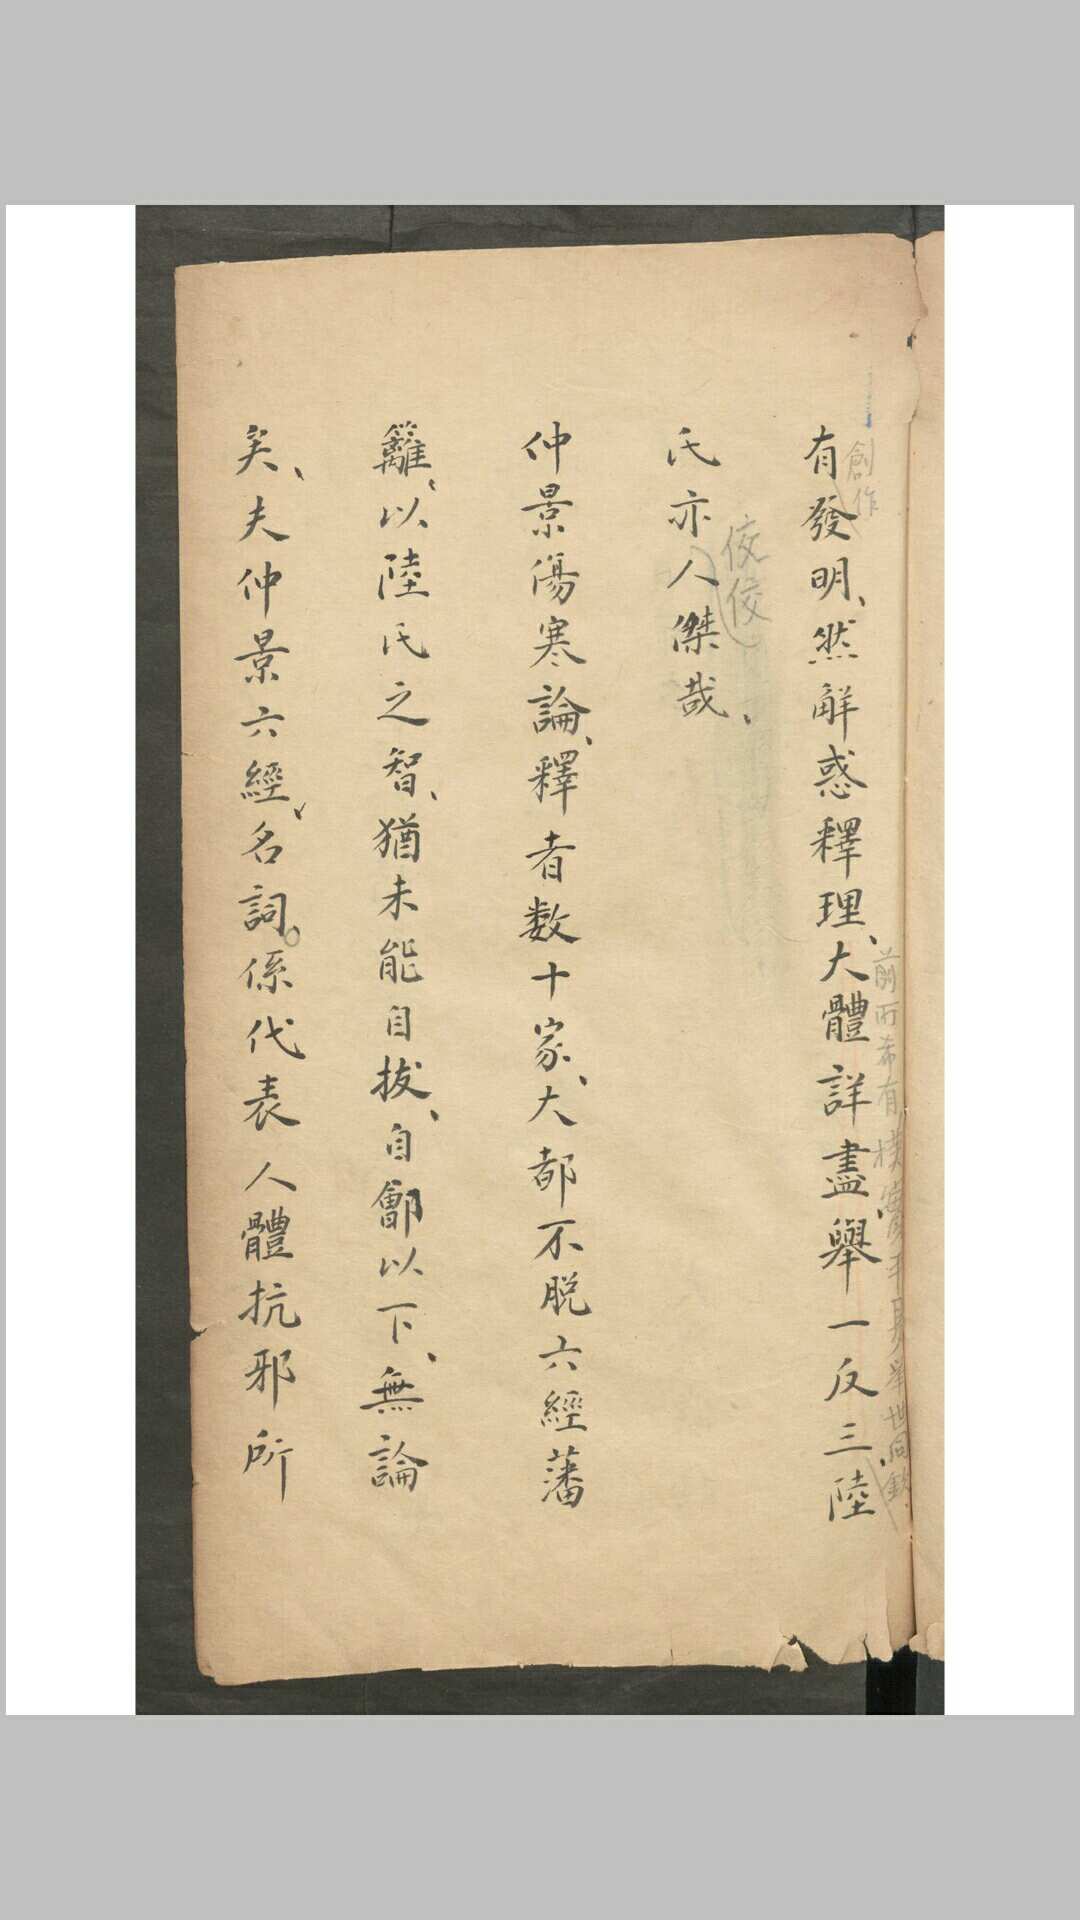 有發明、然解惑釋理、大體詳盡、舉一反三、陸
創作
前所希有
舉世同欽
氏亦人傑哉、
佼佼
仲景傷寒論、釋者數十家、大都不脱六經藩
籬、以陸氏之智、猶未能自拔、自鄶以下、無論
矣、夫仲景六經、名詞。係代表人體抗邪所